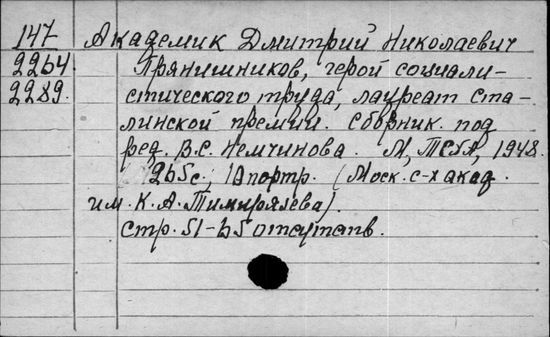 147 Академик Дмитрий Николаевич
2264 Прянишников, герой социали-
2289. стического труда, лауреат Ста-
линской премии. Сборник под
ред. В.С. Немчинова. М, ТСХА, 1948.
265с; 10 портр. (Моск. с-х акад.
им. К.А. Тимирязева).
Стр. 51-55 отсутств.